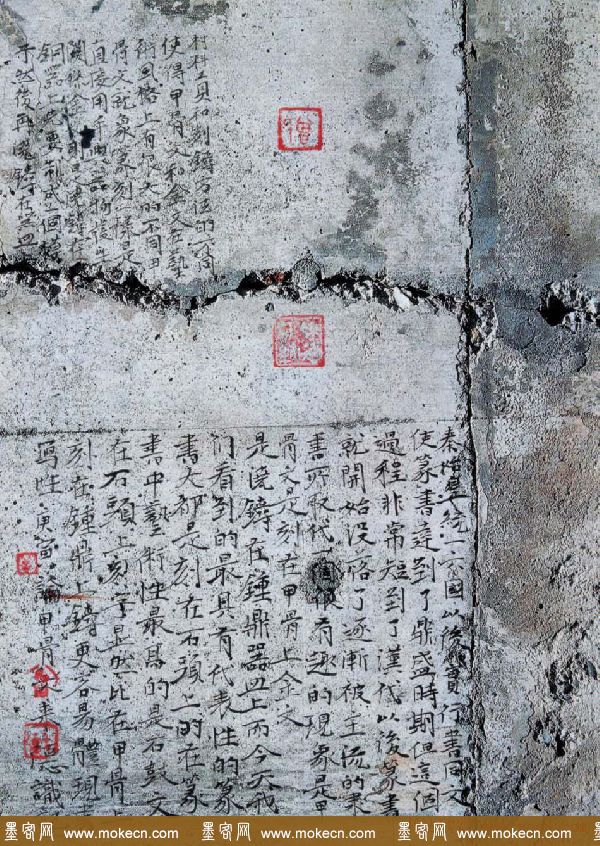 材料工具和制鑄方法的不同
使得甲骨文和金文在藝
術風格上有很大的不同甲
骨文就象篆刻一樣是
直接用手
銅器上
子然後再澆鑄在器皿
秦始皇統一六國以後實行書同文
使篆書達到了鼎盛時期但這個
過程非常短到了漢代以後篆書
就開始沒落了逐漸被主流的隶
書所取代一個很有趣的現象是甲
骨文是刻在甲骨上金文
是澆鑄在鍾鼎器皿上而今天我
們看到的最具有代表性的篆
書大都是刻在石頭上的在篆
書中藝術性最高的是石鼓文
在石頭上刻字显然比在甲骨上
刻在鍾鼎上鑄更容易體現書
寫性庚寅論甲骨文
墨客网 www.mokecn.com 墨客网 www.mokecn.com 墨客网 www.mokecn.com